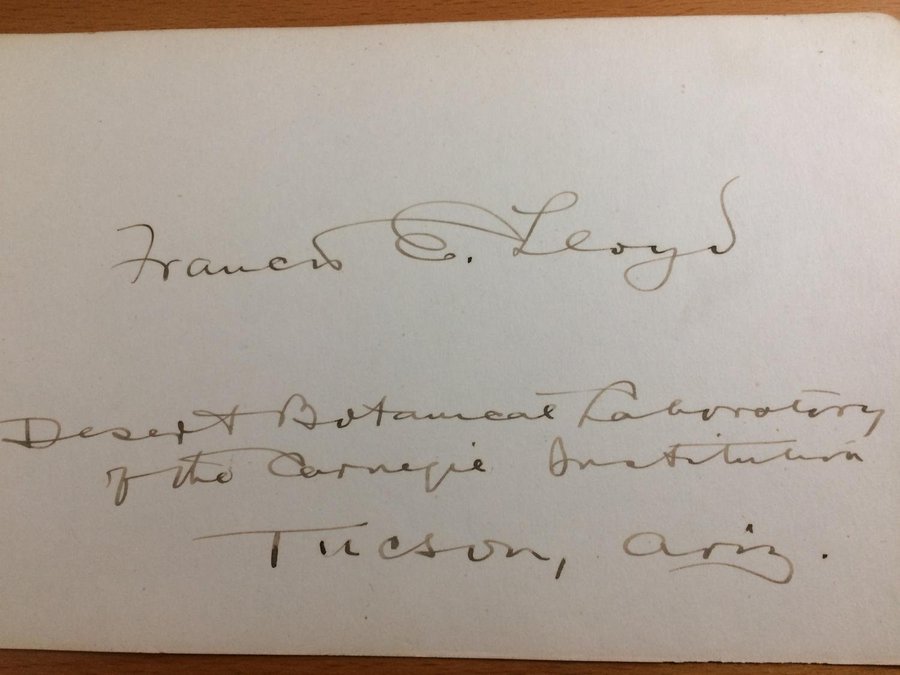 Francis E. Lloyd
Desert Botanical Laboratory
of the Carnegie Institution
Tucson, Ariz.